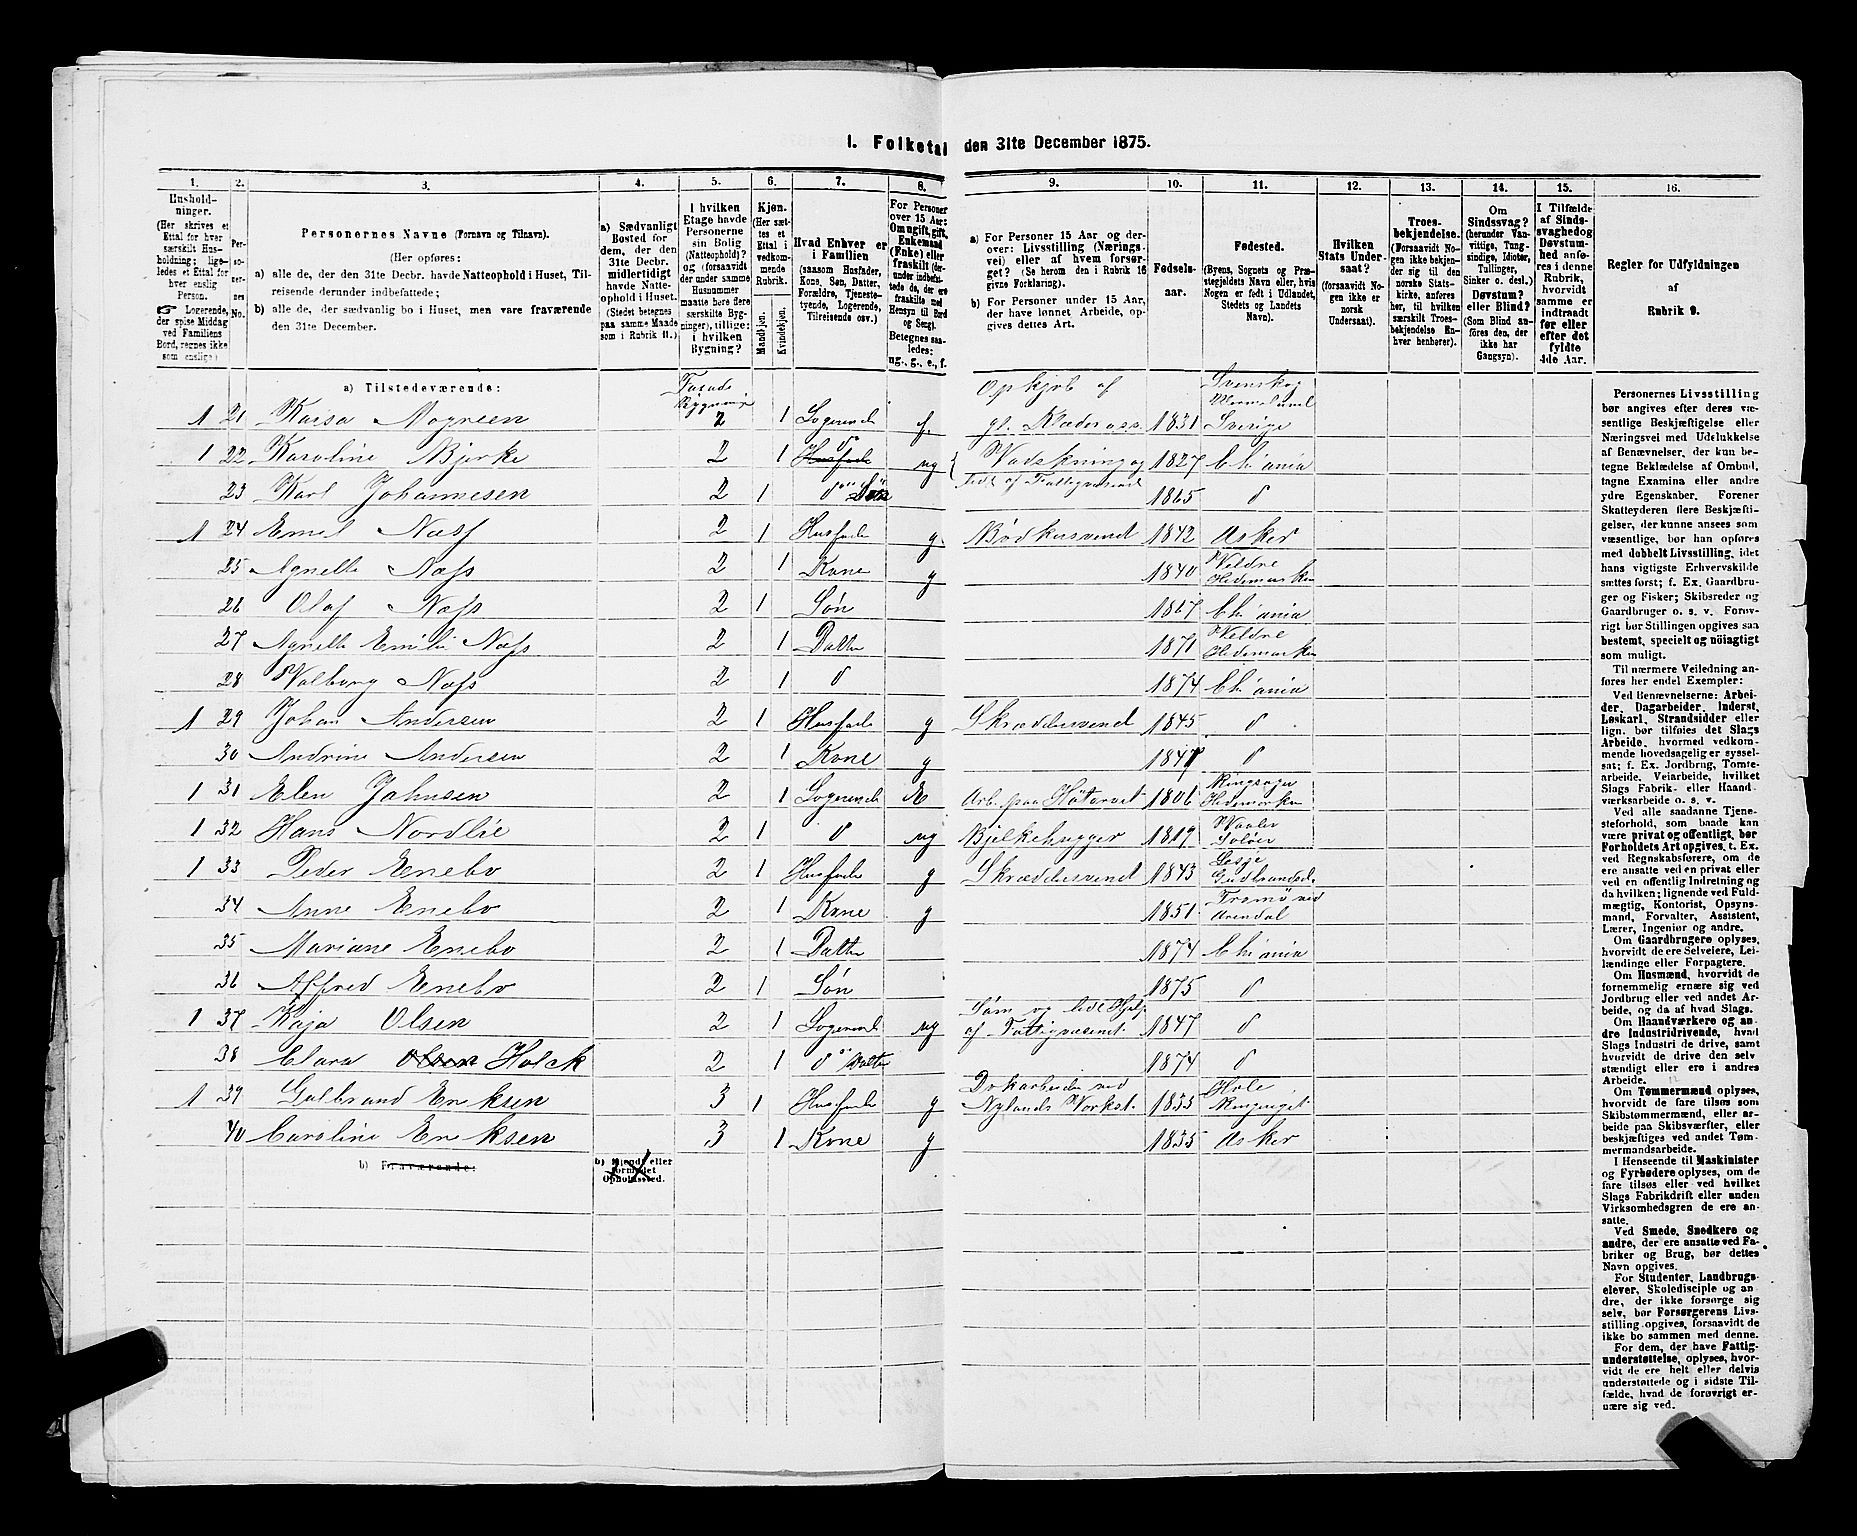 1. Folketal den 31te December 1875.
1. 2. 3. 4. 5. 6. 7. 8. 9. 10. 11. 12. 13. 14. 15. 16.
Husholdninger.
(Her skrives et
Ettal for hver
særskilt Husholdning; ligeledes
et Ettal for
hver enslig
Person.
☞ Logerende,
der spise Middag
ved Familiens
Bord, regnes ikke
som enslige.)
Personernes No.
Personernes Navne (Fornavn og Tilnavn).
(Her opføres:
a) alle de, der den 31te Decbr. havde Natteophold i Huset, Tilreisende
derunder indbefattede;
b) alle de, der sædvanlig bo i Huset, men vare fraværende
den 31te December.
a) Sædvanligt
Bosted for
dem, der den
31te Decbr.
midlertidigt
havde Natteophold
i Huset.
(Stedet betegnes
paa samme Maade
som i Rubrik 11.)
I hvilken
Etage havde
Personerne
sin Bolig
(Natteophold)?
og (forsaavidt
der under samme
Husnummer
maatte høre flere
særskilte Bygninger),
tillige:
i hvilken
Bygning?
Kjøn.
(Her sættes
et Ettal i
vedkommende
Rubrik.
Mandkjøn.
Kvindekjøn.
Hvad Enhver er
i Familien
(saasom Husfader,
Kone, Søn, Datter,
Forældre, Tjenestetyende,
Logerende,
Tilreisende osv.)
For Personer
over 15 Aar:
Om ugift, gift,
Enkemand
(Enke) eller
fraskilt
Betegnes saaledes:
ug., g., e., f.
a) For Personer 15 Aar og derover:
Livsstilling (Næringsvei)
eller af hvem forsørget?
(Se herom den i Rubrik 16
givne Forklaring).
b) For Personer under 15 Aar,
der have lønnet Arbeide, opgives
dettes Art.
Fødselsaar.
Fødested.
(Byens, Sognets og Præstegjeldets
Navn eller, hvis
Nogen er født i Udlandet,
Stedets og Landets
Navn).
Hvilken
Stats Undersaat?
(forsaavidt Nogen
ikke er
norsk
Undersaat).
Troesbekjendelse.
(Forsaavidt Nogen
ikke bekjender
sig til den
norske Statskirke,
anføres
her, til hvilken
særskilt Troesbekjendelse
Enhver
henhører).
Om
Sindssvag?
(herunder Vanvittige,
Tungsindige,
Idioter,
Tullinger,
Sinker o. desl.)
Døvstum?
eller Blind?
(Som Blind anføres
den, der
ikke har
Gangsyn).
I Tilfælde
af Sindssvaghed
og
Døvstumhed
anføres
i denne
Rubrik,
hvorvidt
samme er
indtraadt
før eller
efter det
fyldte
4de Aar.
Regler for Udfyldningen
af
Rubrik 9.
a) Tilstedeværende:
1 21 Kaisa Mogreen Facade Bygning 2 1 Logerende f. Opkjøb af gl. Klæder oss. 1831 Svenskog Vermeland Sverige
1 22 Karoline Bjerke 2 1 Husfade do ug Vadskning og Fede af Fattigvæsend 1827 Chiania
23 Karl Johannesen 2 1 do Søn 1865 do
1 24 Emil Næss 2 1 Husfade g Bødkersvend 1842 Asker
25 Agnette Næss 2 1 Kone g 1840 Veldre Hedemarken
26 Olaf Næss 2 1 Søn 1867 Chiania
27 Agnette Emilie Næss 2 1 Datte 1871 Veldre Hedemarken
28 Valborg Næss 2 1 do 1874 Chiania
1 29 Johan Andersen 2 1 Husfade g Skræddersvend 1845 do
30 Andrine Andersen 2 1 Kone g 1847 do
1 31 Elen Jahnsen 2 1 Logerende E Arb. paa Høtorvet 1806 Ringsager Hedemarken
1 32 Hans Nordlie 2 1 do ug Bjelkehugger 1819 Vaaler Soløer
1 33 Peder Enebo 2 1 Husfade g Skræddersvend 1843 Lesje Gudbrandsd.
34 Anne Enebo 2 1 Kone g 1851 Tromø ved Arendal
35 Mariane Enebo 2 1 Datte 1874 Chiania
36 Alfred Enebo 2 1 Søn 1875 do
1 37 Kaja Olsen 2 1 Logerende ug Søm og lidt Hjelp af Fattigvæsenet 1847 do
38 Clara Olsen Holck 2 1 do Datte 1874 do
1 39 Gulbrand Eriksen 3 1 Husfade g Dokarbeider ved Nylands Værkst. 1835 Hole Ringeriget
40 Caroline Eriksen 3 1 Kone g 1835 Asker
b) Fraværende:
b) Kjendt eller
formodet
Opholdssted.
Personernes Livsstilling
bør angives efter deres væsentlige
Beskjæftigelse eller
Næringsvei med Udelukkelse
af Benævnelser, der kun betegne
Beklædelse af Ombud,
tagne Examina eller andre
ydre Egenskaber. Forener
Skatteyderen flere Beskjæftigelser,
der kunne ansees som
væsentlige, bør han opføres
med dobbelt Livsstilling, idet
hans vigtigste Erhvervskilde
sættes først; f. Ex. Gaardbruger
og Fisker; Skibsreder og
Gaardbruger o. s. v. Forøvrigt
bør Stillingen opgives saa
bestemt, specielt og nöiagtigt
som muligt.
Til nærmere Veiledning anføres
her endel Exempler:
Ved Benævnelserne: Arbeider,
Dagarbeider, Inderst,
Løskarl, Strandsidder eller
lign. bør tilføies det Slags
Arbeide, hvormed vedkommende
hovedsagelig er sysselsat;
f. Ex. Jordbrug, Tomtearbeide,
Veiarbeide, hvilket
Slags Fabrik- eller Haandværksarbeide
o. s. v.
Ved alle saadanne Tjenesteforhold,
som baade kan
være privat og offentligt, bør
Forholdets Art opgives, t. Ex.
ved Regnskabsførere, om de
ere ansatte ved en privat eller
ved en offentlig Indretning og
da hvilken; lignende ved Fuldmægtig,
Kontorist, Opsynsmand,
Forvalter, Assistent,
Lærer, Ingeniør og andre.
Om Gaardbrugere oplyses,
hvorvidt de ere Selveiere, Leilændinge
eller Forpagtere.
Om Husmænd, hvorvidt de
fornemmelig ernære sig ved
Jordbrug eller ved andet Arbeide,
og da af hvad Slags.
Om Haandværkere og andre
Industridrivende, hvad
Slags Industri de drive, samt
hvorvidt de drive den selvstændigt
eller ere i andres
Arbeide.
Om Tømmermænd oplyses,
hvorvidt de fare tilsøs som
Skibstømmermænd, eller arbeide
paa Skibsværfter, eller
beskjæftiges ved andet Tømmermandsarbeide.
I Henseende til Maskinister
og Fyrbødere oplyses, om de
fare tilsøs eller ved hvilket
Slags Fabrikdrift eller anden
Virksomhedsgren de ere ansatte.
Ved Smede, Snedkere og
andre, der ere ansatte ved Fabriker
og Brug, bør dettes
Navn opgives.
For Studenter, Landbrugselever,
Skoledisciple og andre,
der ikke forsørge sig
selv, bør Forsørgerens Livsstilling
opgives, forsaavidt de
ikke bo sammen med denne.
For dem, der have Fattigunderstøttelse,
oplyses, hvorvidt
de ere helt eller delvis
understøttede og i sidste Tilfælde,
hvad de forøvrigt ernære
sig ved.